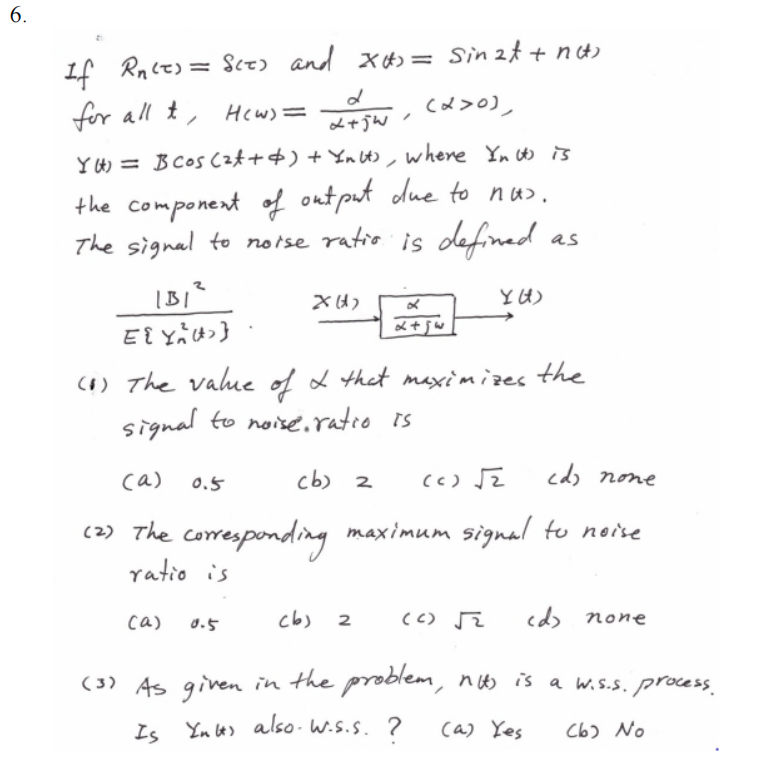 6.
If Rn(τ) = δ(τ) and X(t) = Sin 2t + n(t)
for all t, H(w) = α / (α+jw), (α>0),
Y(t) = B cos (2t+φ) + Yn(t), where Yn(t) is
the component of output due to n(t).
The signal to noise ratio is defined as
|B|² / E{Yn²(t)}.
X(t) α / (α+jw) Y(t)
(1) The value of α that maximizes the
signal to noise.ratio is
(a) 0.5 (b) 2 (c) √2 (d) none
(2) The corresponding maximum signal to noise
ratio is
(a) 0.5 (b) 2 (c) √2 (d) none
(3) As given in the problem, n(t) is a w.s.s. process.
Is Yn(t) also w.s.s. ? (a) Yes (b) No